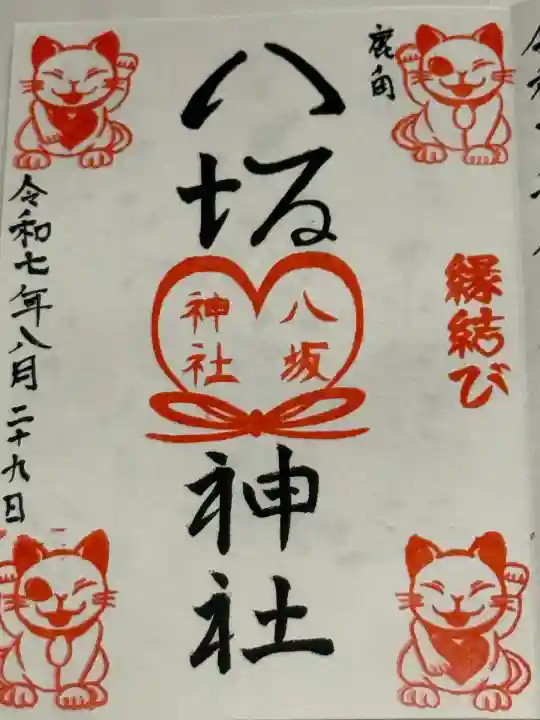 鹿角
縁結び
八坂神社
八坂
神社
令和七年八月二十九日